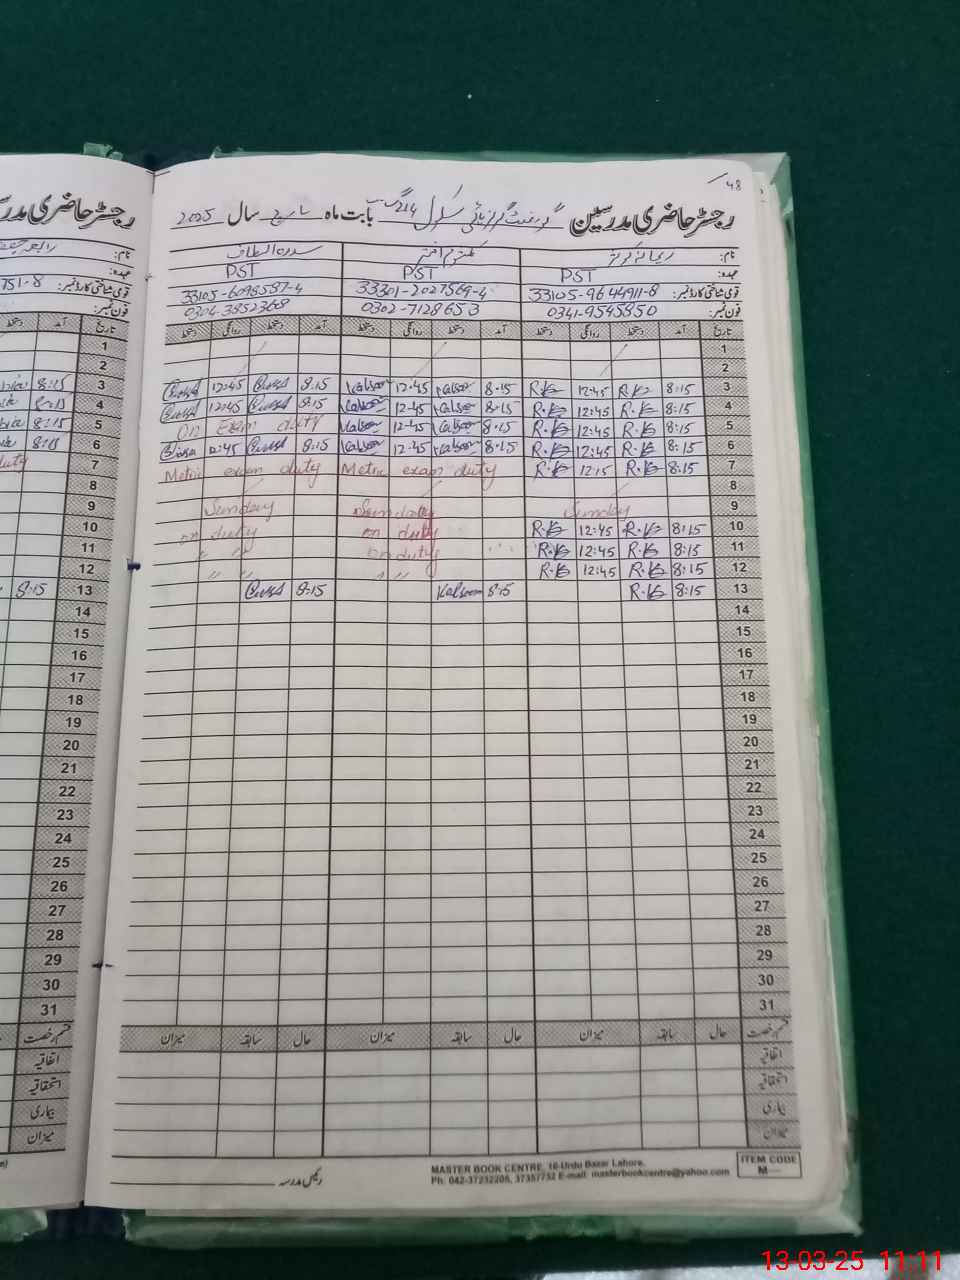 48
رجسٹر حاضری مدرسین گورنمنٹ گرلز ہائی سکول 214 گ ب بابت ماہ مارچ سال 2025
نام: ریحانہ کوثر کلثوم اختر سدرہ الطاف
عہدہ: PST PST PST
قومی شناختی کارڈ نمبر: 33105-9644911-8 33301-2027569-4 33105-6098587-4
فون نمبر: 0341-9545850 0302-7128653 0304-3852368
تاریخ آمد دستخط روانگی دستخط آمد دستخط روانگی دستخط آمد دستخط روانگی دستخط
1
2
3 8:15 R.K 12:45 R.K 8:15 Kalsoom 12:45 Kalsoom 8:15 12:45
4 8:15 R.K 12:45 R.K 8:15 Kalsoom 12:45 Kalsoom 8:15 12:45
5 8:15 R.K 12:45 R.K 8:15 Kalsoom 12:45 Kalsoom on Exam duty
6 8:15 R.K 12:45 R.K 8:15 Kalsoom 12:45 Kalsoom 8:15 12:45
7 8:15 R.K 12:15 R.K Metric exam duty Metric exam duty
8
9 Sunday Sunday Sunday
10 8:15 R.K 12:45 R.K on duty on duty
11 8:15 R.K 12:45 R.K on duty " "
12 8:15 R.K 12:45 R.K " " " "
13 8:15 R.K 8:15 Kalsoom 8:15
14
15
16
17
18
19
20
21
22
23
24
25
26
27
28
29
30
31
قسم رخصت حال سابقہ میزان حال سابقہ میزان حال سابقہ میزان
اتفاقیہ
استحقاقیہ
بیماری
میزان
رئیس مدرسہ
MASTER BOOK CENTRE, 16-Urdu Bazar Lahore.
Ph: 042-37232205, 37357732 E-mail: masterbookcentre@yahoo.com
ITEM CODE
M—
رجسٹر حاضری مدر
نام:
عہدہ:
قومی شناختی کارڈ نمبر: 751-8
فون نمبر:
تاریخ آمد دستخط
1
2
3 8:15
4 8:15
5 8:15
6 8:15
7 duty
8
9
10
11
12
13 8:15
14
15
16
17
18
19
20
21
22
23
24
25
26
27
28
29
30
31
قسم رخصت
اتفاقیہ
استحقاقیہ
بیماری
میزان
13-03-25 11:11